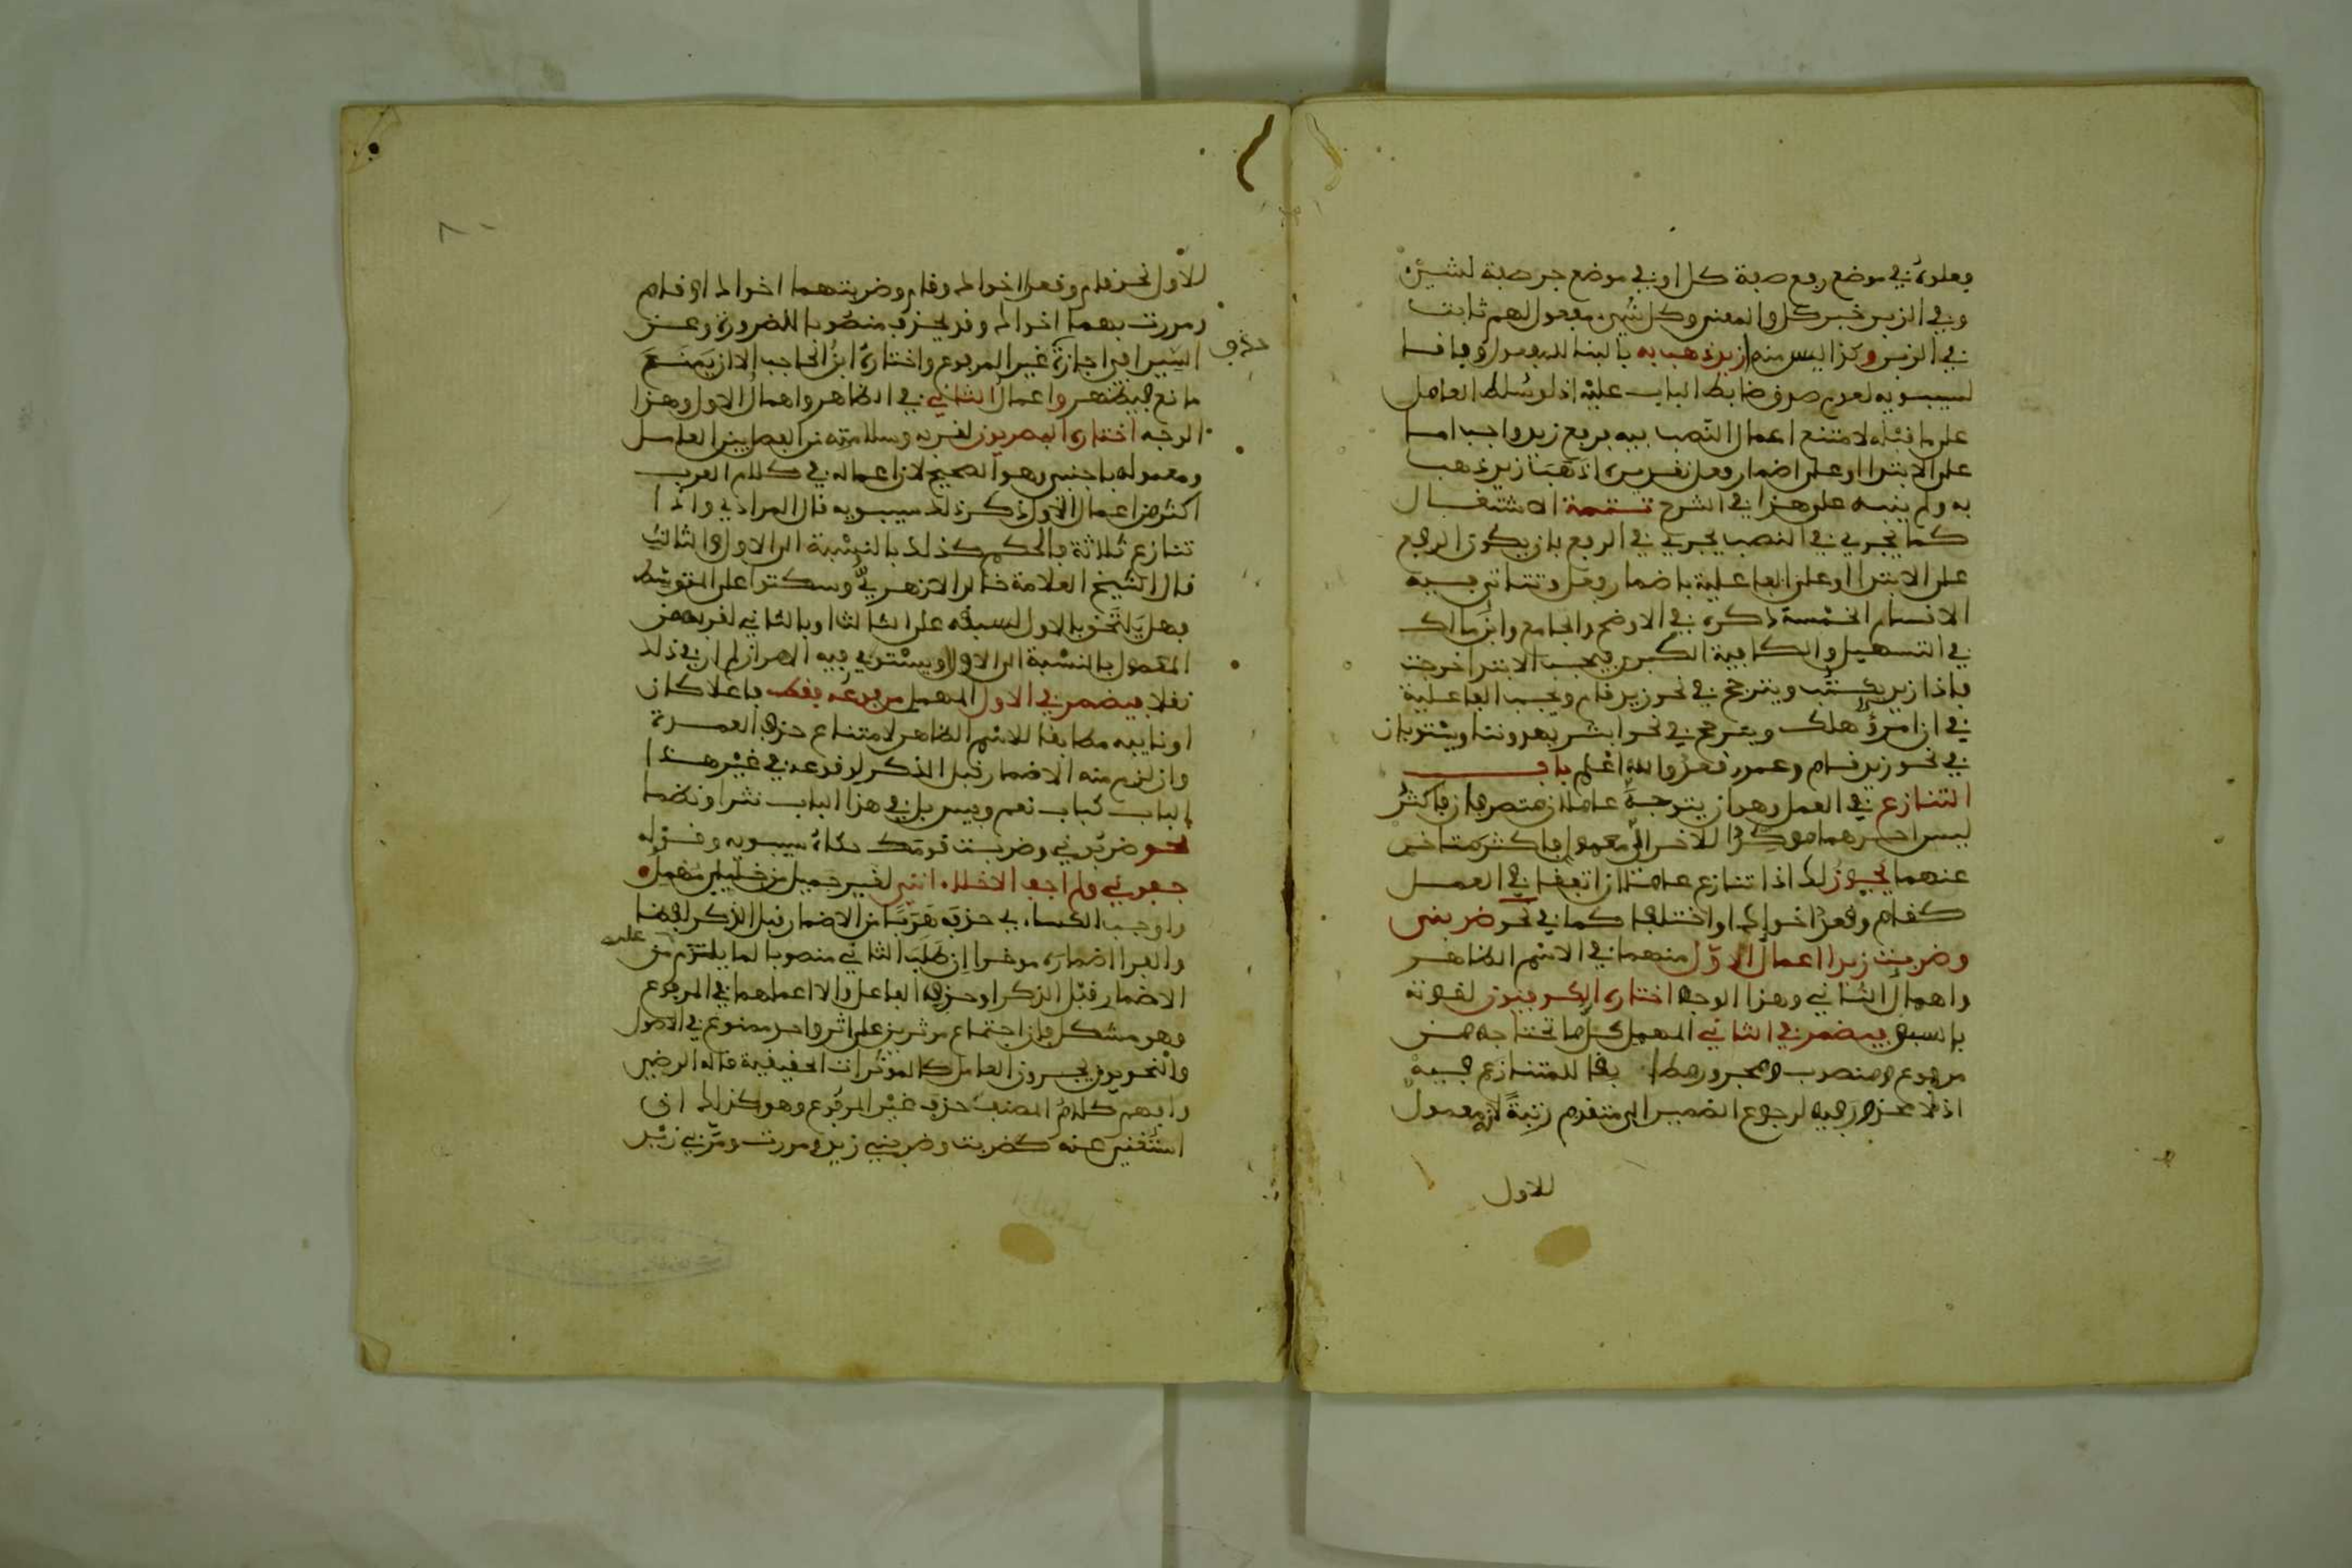 فعلوه في موضع رفع صفة كل او في موضع جر صفة لشيء
وفي الزبر خبر كل والمعنى وكل شيء مفعول لهم ثابت
في الزبر وكذا ليس منه ازيد ذهب به بالبناء للمفعول وفاقا
لسيبويه لعدم صدق ضابط الباب عليه اذ لو سلط العامل
على ما قبله لامتنع اعمال النصب فيه فرفع زيد واجب اما
على الابتدا او على اضمار فعل تفسيره اذهب زيد ذهب
به ولم ينبه على هذا في الشرح تتمة الاشتغال
كما يجري في النصب يجري في الرفع بان يكون الرفع
على الابتدا او على الفاعلية باضمار فعل وتتاتى فيه
الاقسام الخمسة ذكره في الاوضح والجامع وابن مالك
في التسهيل والكافية الكبرى فيجب الابتدا خرجت
فاذا زيد يكتب ويترجح في نحو زيد قام وتجب الفاعلية
في ان امرؤ هلك ويترجح في نحو ابشر يهدوننا ويستويان
في نحو زيد قام وعمرو قعد والله اعلم باب
التنازع في العمل وهو ان يتوجه عاملان متصرفان فاكثر
ليس احدهما موكدا للاخر الى معمول فاكثر متاخر
عنهما يجوز لك اذا تنازع عاملان اتفقا في العمل
كقام وقعد اخواك او اختلفا كما في نحو ضربني
وضربت زيدا اعمال الاول منهما في الاسم الظاهر
واهمال الثاني وهذا الوجه اختاره الكوفيون لقوته
بالسبق فيضمر في الثاني المهمل كل ما تحتاجه من
مرفوع ومنصوب ومجرور مطابقا للمتنازع فيه
اذ لا محذور فيه لرجوع الضمير الى متقدم رتبة لانه معمول
للاول
للاول نحو قام وقعدا اخواك وقام وضربتهما اخواك او قام
ومررت بهما اخواك وقد يحذف منصوبا للضرورة وعن
حذف
السيرافي اجازة غير المرفوع واختاره ابن الحاجب الا ان يمنع
مانع فيظهر واعمال الثاني في الظاهر واهمال الاول وهذا
الوجه اختاره البصريون لقربه وسلامته من الفصل بين العامل
ومعموله باجنبي وهو الصحيح لان اعماله في كلام العرب
اكثر من اعمال الاول ذكر ذلك سيبويه قال المرادي واذا
تنازع ثلاثة فالحكم كذلك بالنسبة الى الاول والثالث
قال الشيخ العلامة خالد الازهري وسكتوا على المتوسط
فهل يلتحق بالاول لسبقه على الثالث او بالثاني لقربه من
المعمول بالنسبة الى الاول او يستوي فيه الامران لم ار في ذلك
نقلا فيضمر في الاول المهمل مرفوعه فقط فاعلا كان
او نايبه مطابقا للاسم الظاهر لامتناع حذف العمدة
وان لزم منه الاضمار قبل الذكر لوقوعه في غير هذا
الباب كباب نعم وبيس بل في هذا الباب نثرا ونظما
نحو ضربوني وضربت قومك حكاه سيبويه وقوله
جفوني ولم اجف الاخلاء انني لغير جميل من خليلي مهمل
واوجب الكسائي حذفه هربا من الاضمار قبل الذكر لفظا
والفرا اضماره موخرا ان طلب الثاني منصوبا لما يلتزم من
عليه
الاضمار قبل الذكر او حذف الفاعل والا اعملهما في المرفوع
وهو مشكل فان اجتماع موثرين على اثر واحد ممنوع في الاصول
والنحويون يجرون العامل كالموثرات الحقيقية قاله الرضي
وافهم كلام المصنف حذف غير المرفوع وهو كذلك ان
استغني عنه كضربت وضربني زيد ومررت ومر بي زيد